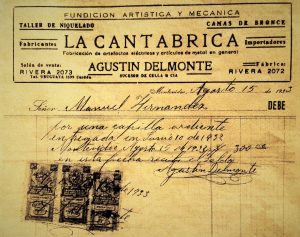 FUNDICION ARTISTICA Y MECANICA
TALLER DE NIQUELADO
CAMAS DE BRONCE
Fabricantes
LA CANTABRICA
Importadores
Fabricación de artefactos eléctricos y artículos de metal en general
Salón de venta:
RIVERA 2073
AGUSTIN DELMONTE
SUCESOR DE CELLA & CIA
Fábrica:
RIVERA 2072
Montevideo, Agosto 15 de 1933
Señor Manuel Hernandez
DEBE
Por una capilla ardiente
entregada en Junio de 1933
Montevideo Agosto 15 1933 $ 300.00
en esta fecha
Agustin Delmonte
1933